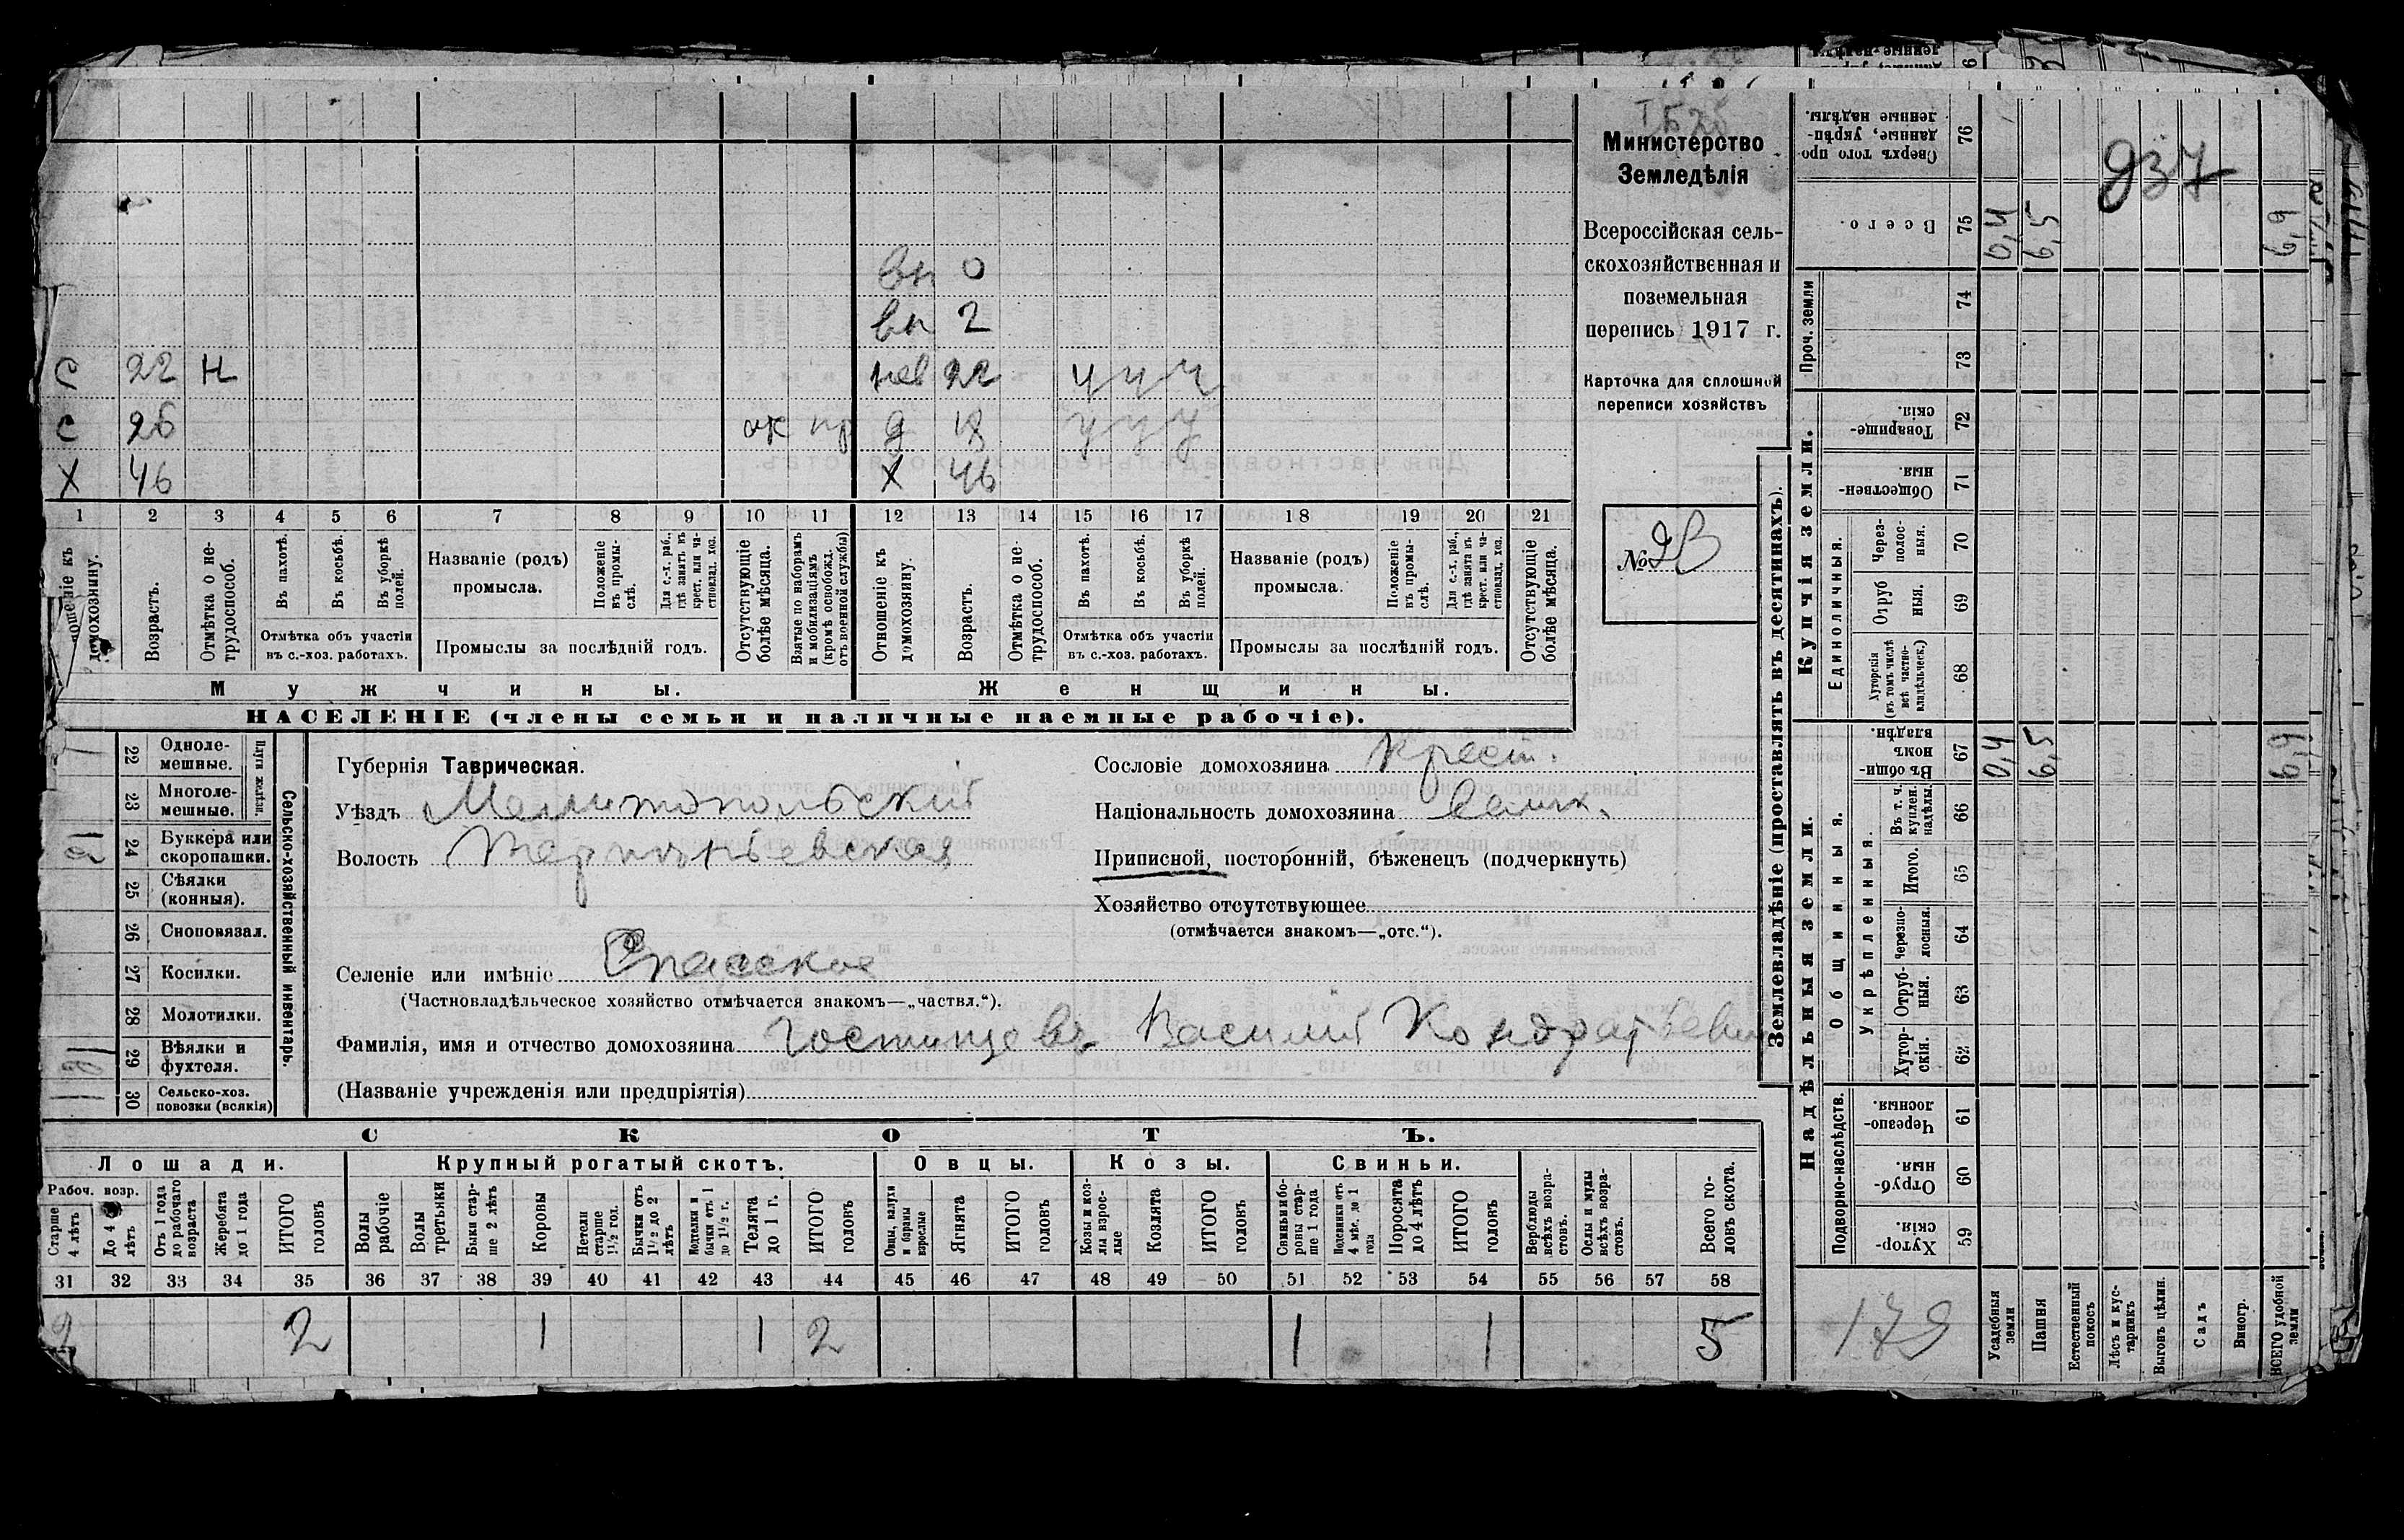 вн 0
вн 2
С 22 Н нев 22 у у у
С 26 ок пр д 18 у у у
Х 46 Х 46
1 2 3 4 5 6 7 8 9 10 11 12 13 14 15 16 17 18 19 20 21
домохозяину.
Возрастъ.
Отмѣтка о не-
трудоспособ.
Въ пахотѣ.
Въ косьбѣ.
Въ уборкѣ
полей.
Отмѣтка объ участіи
въ с.-хоз. работахъ.
Названіе (родъ)
промысла.
Положеніе
въ промы-
слѣ.
Для с.-х. раб.,
гдѣ занятъ въ
крест. или ча-
стновлад. хоз.
Промыслы за послѣдній годъ.
Отсутствующіе
болѣе мѣсяца.
Взятые по наборамъ
и мобилизаціямъ
(кромѣ освобожд.
отъ военной службы)
Отношеніе къ
домохозяину.
Возрастъ.
Отмѣтка о не-
трудоспособ.
Въ пахотѣ.
Въ косьбѣ.
Въ уборкѣ
полей.
Отмѣтка объ участіи
въ с.-хоз. работахъ.
Названіе (родъ)
промысла.
Положеніе
въ промы-
слѣ.
Для с.-х. раб.,
гдѣ занятъ въ
крест. или ча-
стновлад. хоз.
Промыслы за послѣдній годъ.
Отсутствующіе
болѣе мѣсяца.
Мужчины.
Женщины.
НАСЕЛЕНІЕ (члены семьи и наличные наемные рабочіе).
Министерство
Земледѣлія
Всероссійская сель-
скохозяйственная и
поземельная
перепись 1917 г.
Карточка для сплошной
переписи хозяйствъ
№
22 Одноле-
мешные.
23 Многоле-
мешные.
24 Буккера или
скоропашки.
25 Сѣялки
(конныя).
26 Сноповязал.
27 Косилки.
28 Молотилки.
29 Вѣялки и
фухтеля.
30 Сельско-хоз.
повозки (всякія)
Сельско-хозяйственный инвентарь.
Губернія Таврическая.
Уѣздъ Мелитопольскій
Волость Терпѣньевская
Селеніе или имѣніе Спасское
(Частновладѣльческое хозяйство отмѣчается знакомъ—„частвл.“).
Фамилія, имя и отчество домохозяина Гостищевъ Василій Кондратьевич
(Названіе учрежденія или предпріятія)
Сословіе домохозяина крест.
Національность домохозяина
Приписной, посторонній, бѣженецъ (подчеркнуть)
Хозяйство отсутствующее
(отмѣчается знакомъ—„отс.“).
СКОТЪ.
Лошади. Крупный рогатый скотъ. Овцы. Козы. Свиньи.
Рабоч. возр.
Старше
4 лѣтъ
До 4
лѣтъ
Отъ 1 года
до рабочаго
возраста
Жеребята
до 1 года
ИТОГО
головъ
Волы
рабочіе
Волы
третьяки
Быки стар-
ше 2 лѣтъ
Коровы
Нетели
старше
1½ год.
Бычки отъ
1½ до 2
лѣтъ
Подтелки и
бычки отъ 1
до 1½ г.
Телята
до 1 г.
ИТОГО
головъ
Овцы, валухи
и бараны
взрослые
Ягнята
ИТОГО
головъ
Козы и коз-
лы взрос-
лые
Козлята
ИТОГО
головъ
Свиньи и бо-
ровы стар-
ше 1 года
Подсвинки отъ
4 мѣс. до 1
года
Поросята
до 4 лѣтъ
ИТОГО
головъ
Верблюды
всѣхъ возра-
стовъ.
Ослы и мулы
всѣхъ возра-
стовъ.
Всего го-
ловъ скота.
31 32 33 34 35 36 37 38 39 40 41 42 43 44 45 46 47 48 49 50 51 52 53 54 55 56 57 58
2 2 1 1 2 1 1 5
Землевладѣніе (проставлять въ десятинахъ).
Сверхъ того про-
данные, укрѣп-
ленные надѣлы. 76
937
Всего. 75 0,4 6,5 6,9
Проч. земли 74
73
Купчія земли.
Товарище-
скія. 72
Обществен-
ныя 71
Единоличныя.
Через-
полос-
ныя. 70
Отруб
ныя. 69
Хуторскія
(въ томъ числѣ
всѣ частно-
владѣльческ.) 68
Надѣльныя земли.
Общинныя.
Въ общин-
номъ
владѣн. 67 0,4 6,5 6,9
Укрѣпленныя.
Въ т. ч.
куплен.
надѣлы. 66
Итого. 65
Черезпо-
лосныя. 64
Отруб-
ныя. 63
Хутор-
скія. 62
Подворно-наслѣдств.
Черезпо-
лосныя. 61
Отруб-
ныя. 60
Хутор-
скія. 59
179
Усадебныя
земли
Пашня
Естественный
покосъ
Лѣсъ и кус-
тарникъ
Выгонъ цѣлин.
Садъ
Виногр.
ВСЕГО удобной
земли